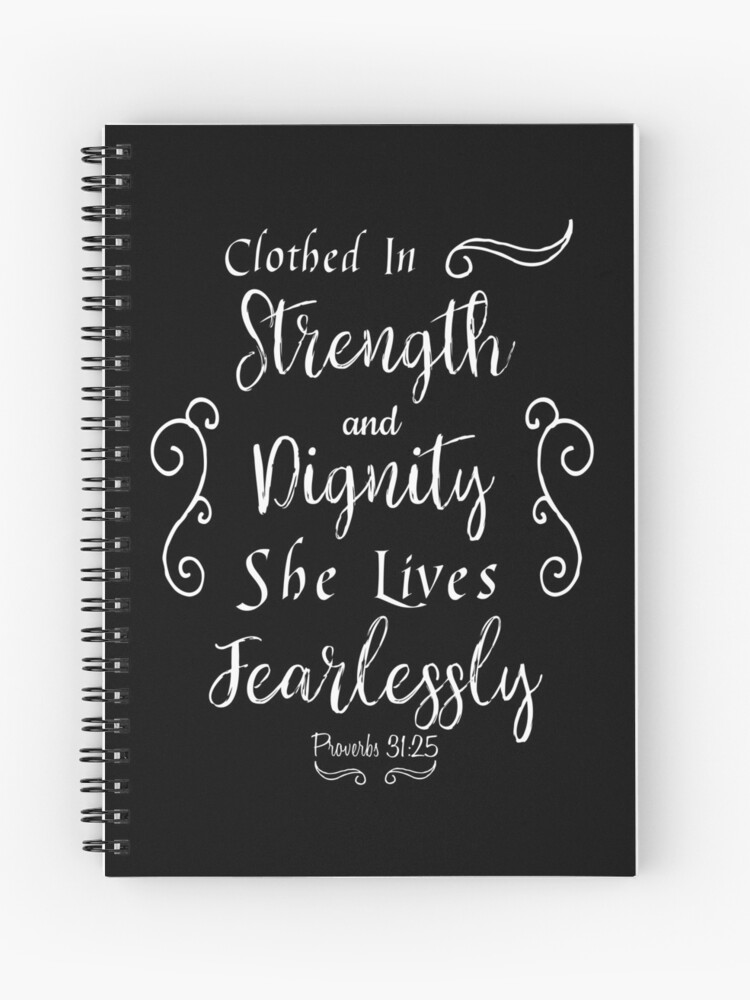 Clothed In
Strength
and
Dignity
She Lives
Fearlessly
Proverbs 31:25